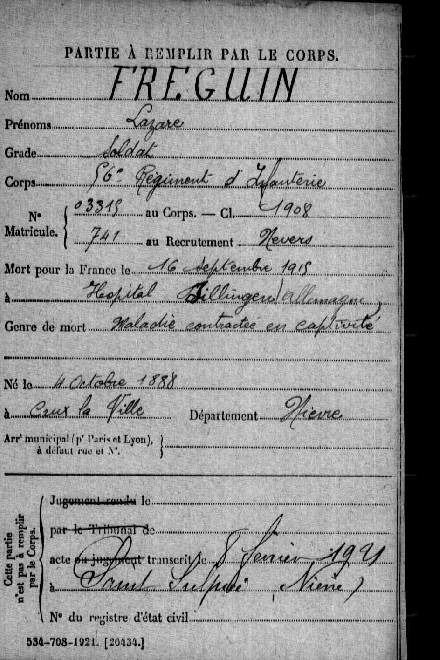 PARTIE À REMPLIR PAR LE CORPS.
Nom FREGUIN
Prénoms Lazare
Grade Soldat
Corps 56e Régiment d'Infanterie
N° Matricule. { 03315 au Corps. — Cl. 1908
741 au Recrutement Nevers
Mort pour la France le 16 septembre 1915
à Hopital Dillingen (Allemagne)
Genre de mort Maladie contractée en captivité
Né le 4 Octobre 1888
à Crux la Ville Département Nièvre
Arrt municipal (pr Paris et Lyon), à défaut rue et N°. }
Cette partie n'est pas à remplir par le Corps.
Jugement rendu le
par le Tribunal de
acte ou jugement transcrit le 8 février 1921
à Saint Sulpice (Nièvre)
N° du registre d'état civil
534-708-1921. [20434.]